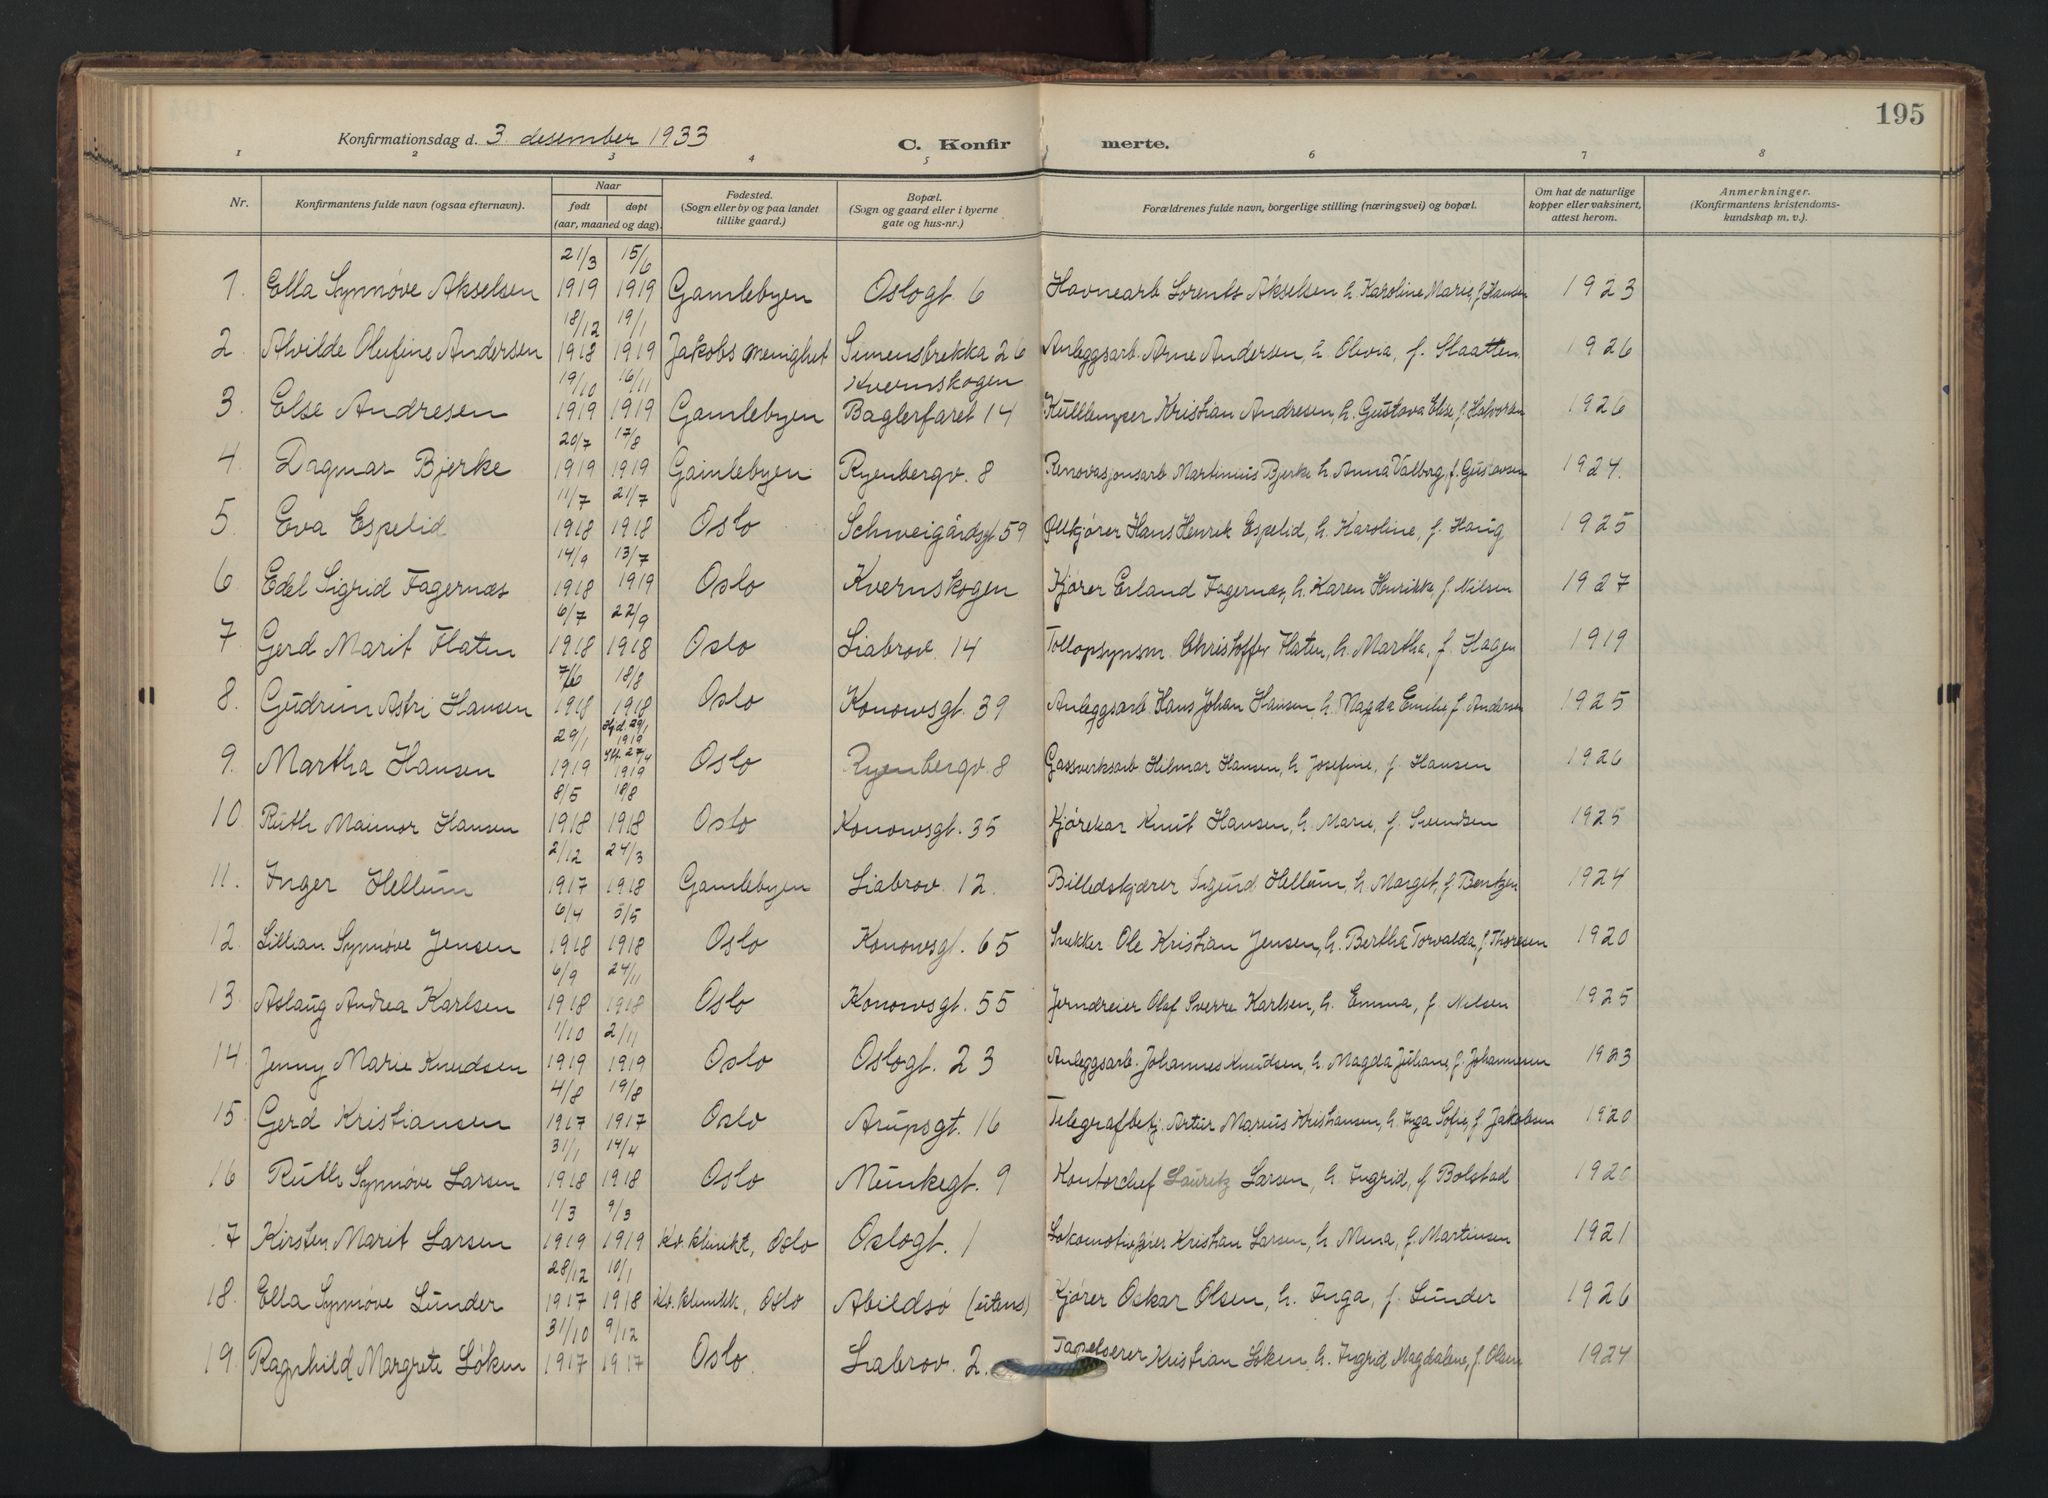 195
Konfirmationsdag d. 3. desember 1933
C. Konfirmerte.
1 2 3 4 5 6 7 8
Nr.
Konfirmantens fulde navn (ogsaa efternavn).
Naar
født døpt
(aar, maaned og dag).
Fødested.
(Sogn eller by og paa landet
tillike gaard.)
Bopæl.
(Sogn og gaard eller i byerne
gate og hus-nr.)
Forældrenes fulde navn, borgerlige stilling (næringsvei) og bopæl.
Om hat de naturlige
kopper eller vaksinert,
attest herom.
Anmerkninger.
(Konfirmantens kristendoms-
kundskap m. v.).
21/3 15/6
1. Ella Synnøve Akselsen 1919 1919 Gamlebyen Oslogt. 6 Havnearb. Lorents Akselsen h. Karoline Marie, f. Hansen 1923
18/12 19/1
2. Alvilde Olufine Andersen 1918 1919 Jakobs menighet Simensbrekka 26 Anleggsarb. Arne Andersen, h. Olivia, f. Slaatten 1926
19/10 16/11 Kvernskogen
3. Else Andresen 1919 1919 Gamlebyen Baglerfaret 14 Kullemper Kristian Andresen, h. Gustava Elise, f. Halvorsen 1926
20/7 17/8
4. Dagmar Bjerke 1919 1919 Gamlebyen Ryenbergv. 8 Renovasjonsarb. Martinius Bjerke h. Anna Valborg, f. Gustavsen 1924.
11/7 21/7
5. Eva Espelid 1918 1918 Oslo Schweigårdsgt. 59 Ølkjører Hans Henrik Espelid, h. Karoline, f. Haug 1925
14/9 13/7
6 Edel Sigrid Fagernæs 1918 1919 Oslo Kvernskogen Kjører Erland Fagernæs, h. Karen Henrikke, f. Nilsen 1927
6/7 22/9
7. Gerd Marit Flaten 1918 1918 Oslo Liabrov. 14 Tollopsynsm. Christoffer Flaten, h. Martha, f. Hagen 1919
7/6 18/8
8. Gudrun Astri Hansen 1918 1918 Oslo Konowsgt. 39 Anleggsarb. Hans Johan Hansen, h. Magda Emilie, f. Andersen 1925
29/1 Hjd. 29/1 1919
9. Martha Hansen 1919 27/4 1919 Oslo Ryenbergv. 8 Gassverksarb. Hilmar Hansen, h. Josefine, f. Hansen 1926
8/5 18/8
10. Ruth Maimor Hansen 1918 1918 Oslo Konowsgt. 35 Kjørekar Knut Hansen, h. Marie, f. Svendsen 1925
2/12 24/3
11. Inger Hellum 1917 1918 Gamlebyen Liabrov. 12. Billedskjærer Sigurd Hellum, h. Marget, f. Bentzen 1924
6/4 5/5
12. Lillian Synnøve Jensen 1918 1918 Oslo Konowsgt. 65 Snekker Ole Kristian Jensen, h. Bertha Torvalda, f. Thoresen 1920
6/9 24/11
13. Aslaug Andrea Karlsen 1918 1918 Oslo Konowsgt. 55 Jerndreier Olaf Sverre Karlsen, h. Emma, f. Nilsen 1925
1/10 2/11
14. Jenny Marie Knudsen 1919 1919 Oslo Oslogt. 23 Anleggsarb. Johannes Knudsen, h. Magda Juliane, f. Johannesen 1923
4/8 19/8
15. Gerd Kristiansen 1917 1917 Oslo Arupsgt. 16 Telegrafbetj. Artur Marius Kristiansen, h. Inga Sofie, f. Jakobsen 1920
31/1 14/4
16 Ruth Synnøve Larsen 1918 1918 Oslo Munkegt. 9 Kontorchef Lauritz Larsen, h. Ingrid, f. Bolstad 1920
1/3 9/3
17 Kirsten Marit Larsen 1919 1919 Kv. klinikk, Oslo Oslogt. 1 Lokomotivfører Kristian Larsen, h. Mina, f. Martinsen 1921
28/12 10/1
18. Ella Synnøve Lunder 1917 1918 Kv. klinikk, Oslo Abildsø (utens) Kjører Oskar Olsen, h. Inga, f. Lunder 1926
31/10 9/12
19. Ragnhild Margrete Løken 1917 1917 Oslo Liabrov. 2. Tapetserer Kristian Løken, h. Ingrid Magdalene, f. Olsen 1924